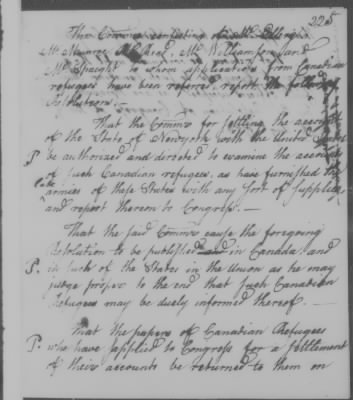 225
The Committee consisting of Mr Ellery
Mr Monroe Mr Read, Mr Williamson and
Mr Spaight to whom applications from Canadian
refugees have been referred, report the following
Resolutions. —
That the Commr for settling the accounts
of the State of Newyork with the United States
P be authorized and directed to examine the accounts
of such Canadian refugees, as have furnished the
late armies of these States with any sort of supplies
and report thereon to Congress. —
That the said Commr cause the foregoing
Resolution to be published in Canada, and
P. in such of the States in the Union as he may
judge proper to the end that such Canadian
Refugees may be duely informed thereof. —
That the papers of Canadian Refugees
P. who have applied to Congress for a settlement
of their accounts be returned to them on